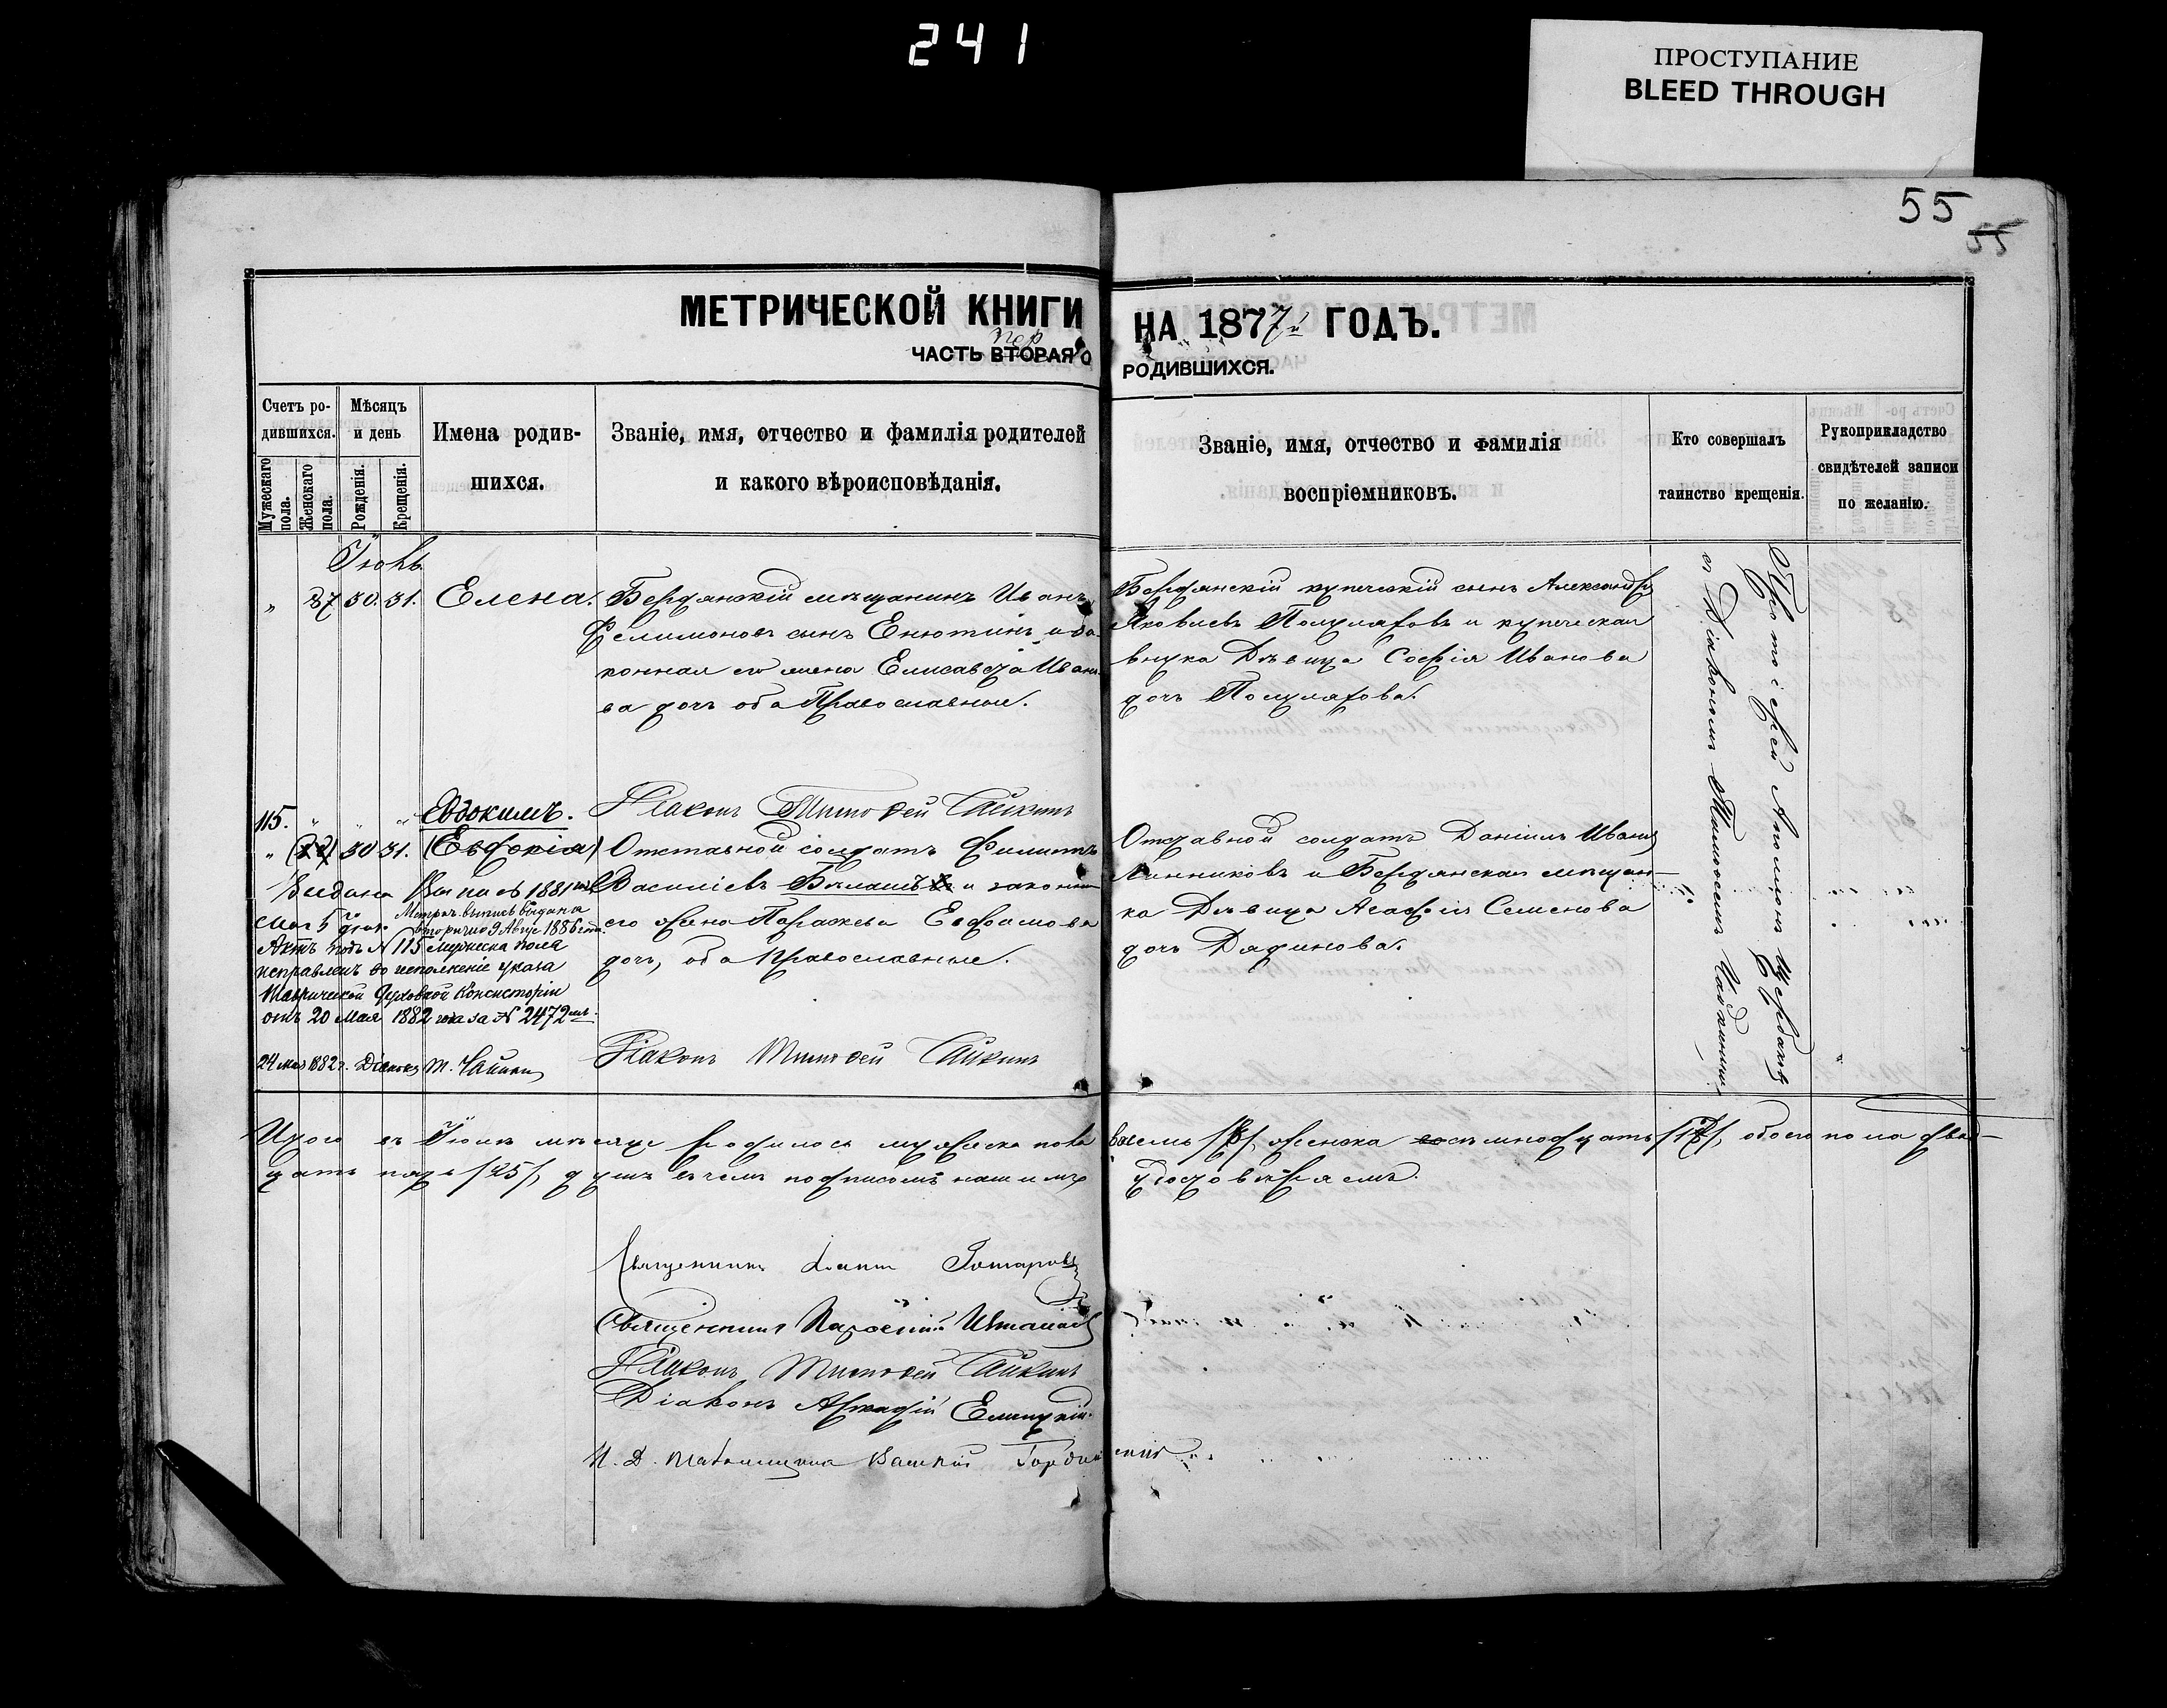 241
ПРОСТУПАНИЕ
BLEED THROUGH
55
55
МЕТРИЧЕСКОЙ КНИГИ НА 1877й ГОДЪ.
пер
ЧАСТЬ ВТОРАЯ О РОДИВШИХСЯ.
Счетъ ро-
дившихся.
Мужескаго пола.
Женскаго пола.
Мѣсяцъ
и день
Рожденія.
Крещенія.
Имена родив-
шихся.
Званіе, имя, отчество и фамилія родителей
и какого вѣроисповѣданія.
Званіе, имя, отчество и фамилія
воспріемниковъ.
Кто совершалъ
таинство крещенія.
Рукоприкладство
свидѣтелей записи
по желанію.
Іюнь
" 87 30. 31. Елена.
Бердянскій мѣщанинъ Иванъ
Филимоновъ сынъ Енютинъ и за-
конная его жена Елисавета Ивано-
ва дочь оба Православные.
Бердянскій купеческій сынъ Александръ
Яковлевъ Полуляховъ и купеческая
внука Дѣвица Софія Иванова
дочь Полуляхова.
Протоіерей Аполлонъ
съ Діакономъ Тимофеемъ Чайкинымъ
115. " " " Евдокимъ.
Діаконъ Тимофей Чайкинъ
" 30 31. (Евдокія)
Отставной солдатъ Филиппъ
Василіевъ и законная
его жена Параскева Евфимова
дочь, оба Православные.
Отставной солдатъ Даніилъ Ивановъ
Линниковъ и Бердянская мѣщан-
ка Дѣвица Агафія Семенова
дочь Дядинова.
Выдана Выпись 1881 года
Мая 5 дня.
Метрич. выпись выдана
вторично 9 Авгус 1886 г.
Актъ подъ № 115 мужеска пола
исправленъ во исполненіе указа
Таврической Духовной Консисторіи
отъ 20 Мая 1882 года за № 2472мъ.
24 мая 1882 г. Діаконъ Т. Чайкинъ
Діаконъ Тимофей Чайкинъ
Итого въ Іюнѣ мѣсяцѣ родилось мужеска пола восемь /8/, женска семнадцать /17/, обоего пола двад-
цать пять /25/ душъ въ чемъ подписомъ нашимъ удостовѣряемъ.
Священникъ Гончаровъ
Священникъ
Діаконъ Тимофей Чайкинъ
Діаконъ Аркадій Елицкій
И. Д. Псаломщика Василій